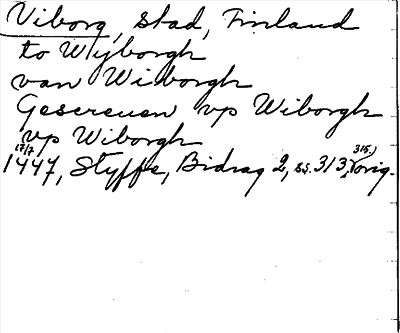 Viborg, stad, Finland
to Wyborgh
van Wiborgh
Gescreuen vp Wiborgh
vp Wiborgh
17/7
1447, Styffe, Bidrag 2, ss. 313, 315. orig.